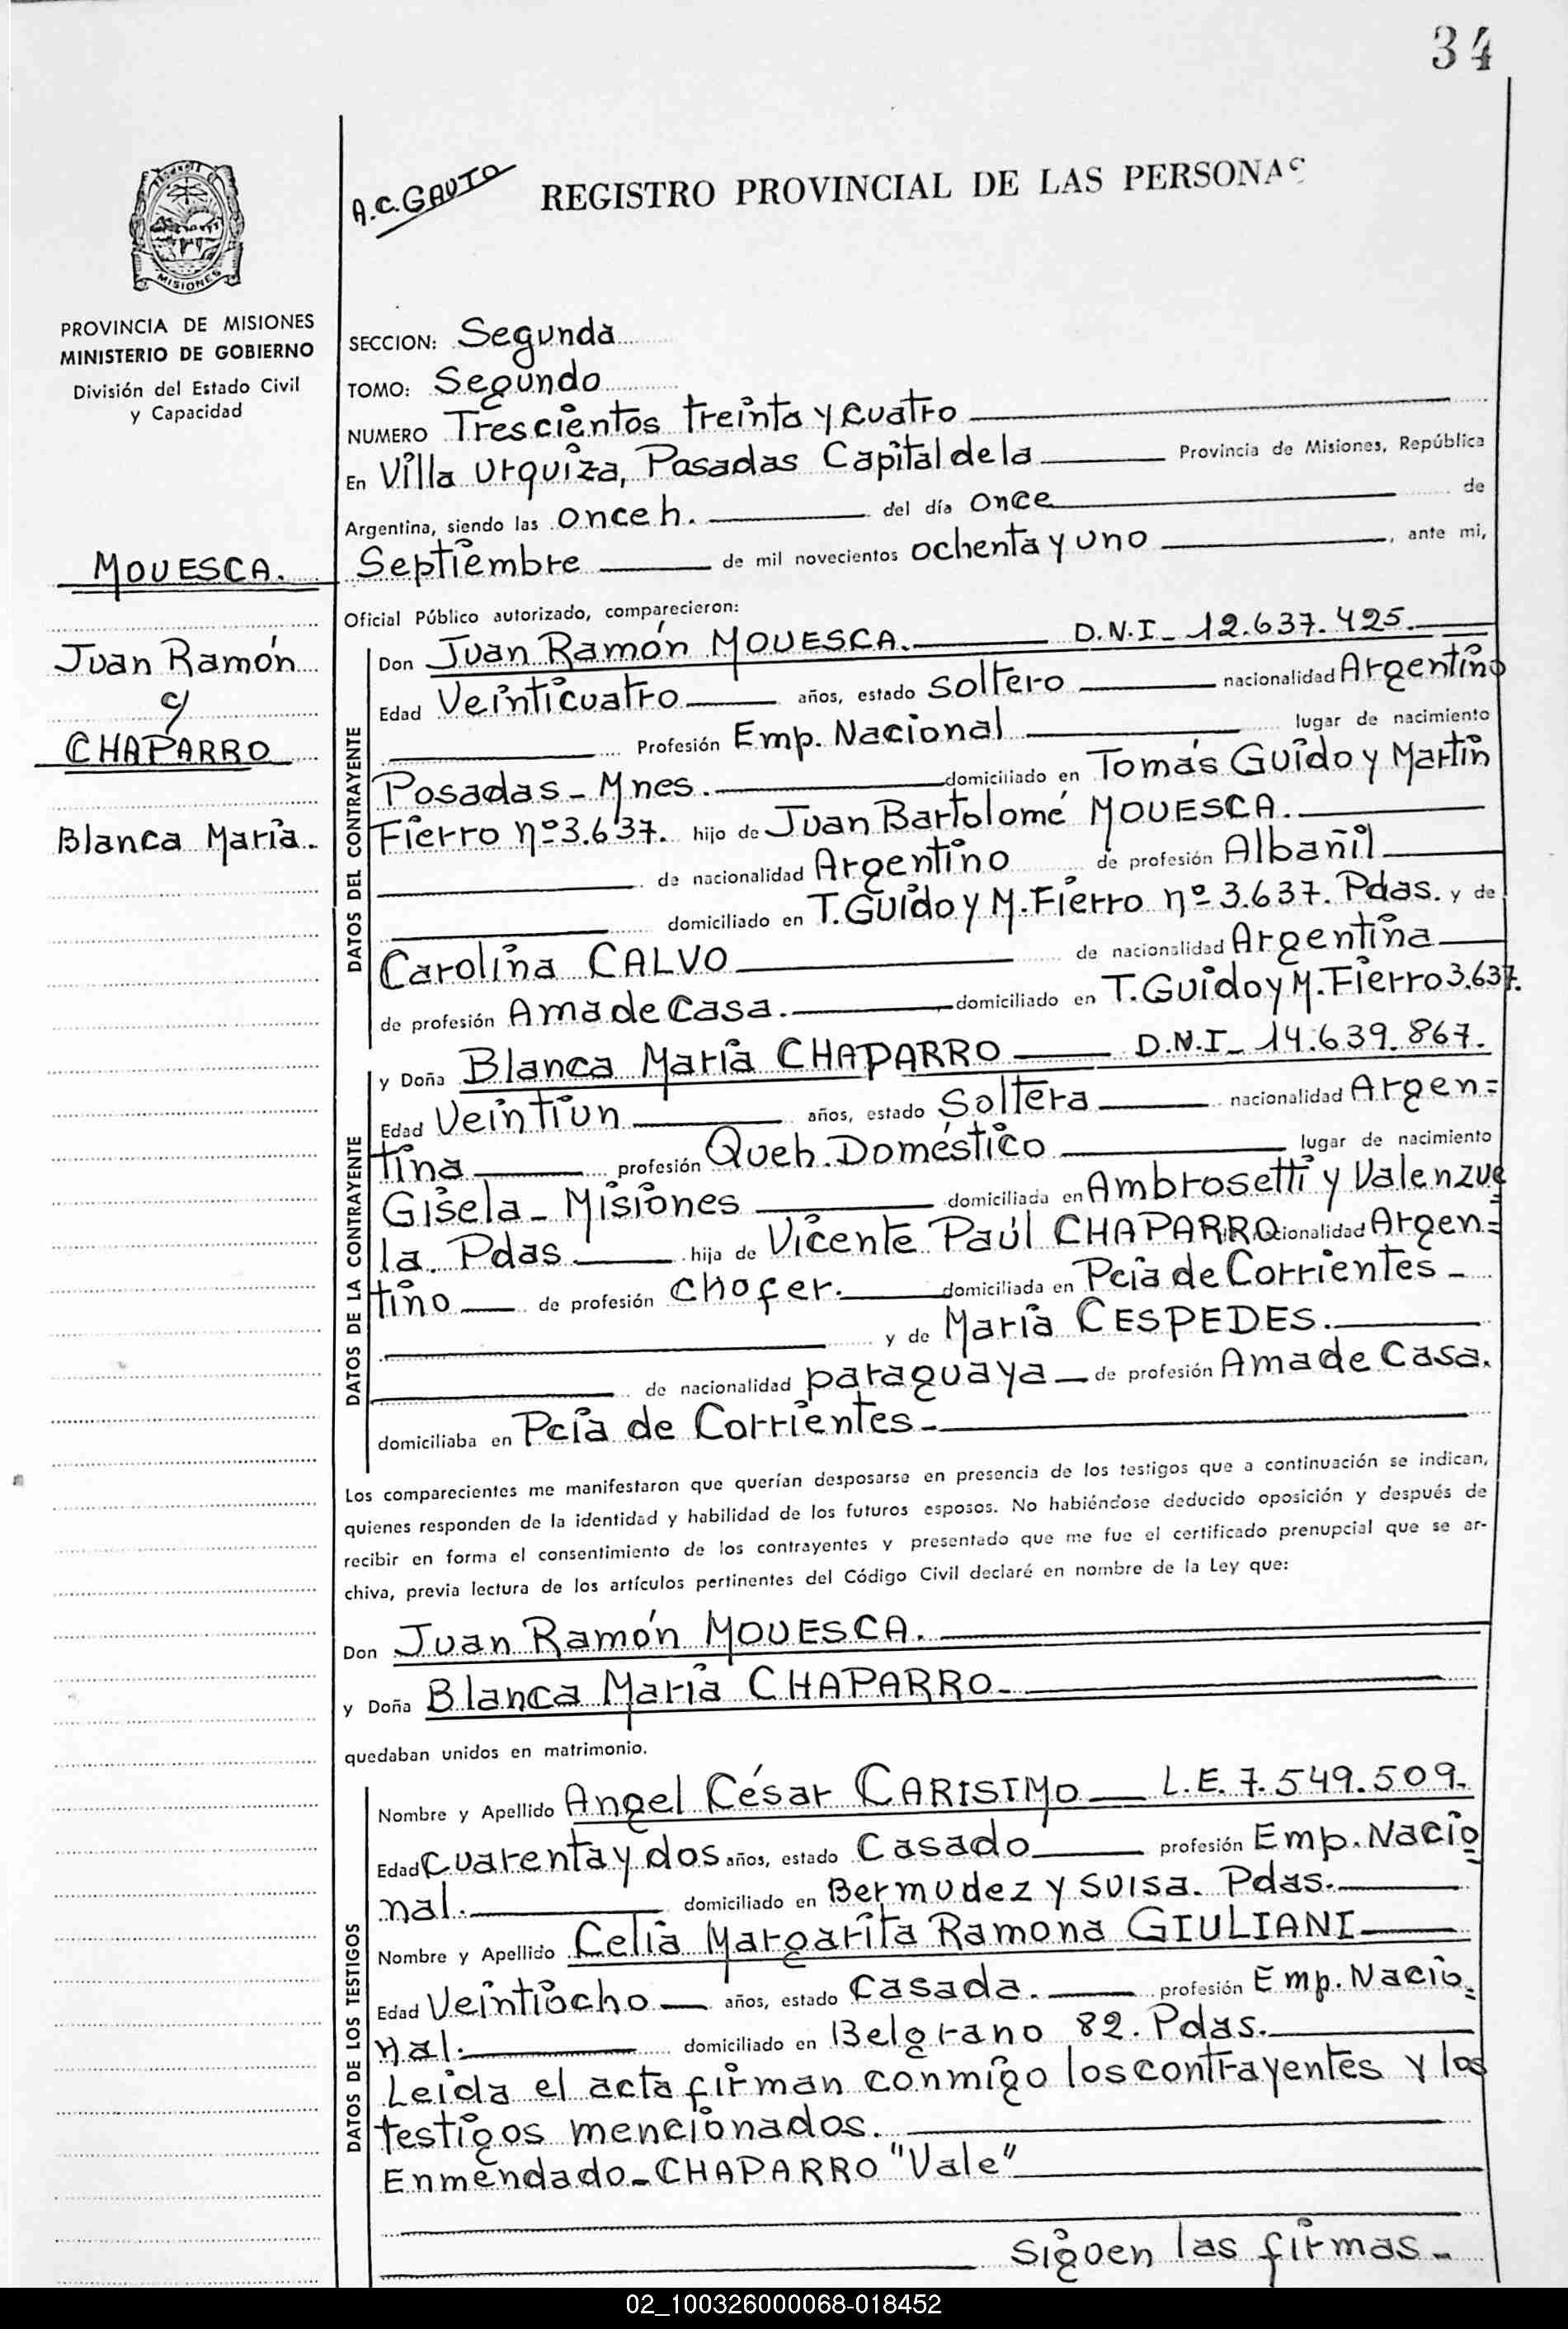 34
A.C. GAUTO
REGISTRO PROVINCIAL DE LAS PERSONAS
MISIONES
PROVINCIA DE MISIONES
MINISTERIO DE GOBIERNO
División del Estado Civil
y Capacidad
MOUESCA.
Juan Ramón
c/
CHAPARRO
Blanca María.
SECCION: Segunda
TOMO: Segundo
NUMERO Trescientos treinta y cuatro
En Villa Urquiza, Posadas Capital de la Provincia de Misiones, República
Argentina, siendo las once h. del día once de
Septiembre de mil novecientos ochenta y uno, ante mi,
Oficial Público autorizado, comparecieron:
DATOS DEL CONTRAYENTE
Don Juan Ramón MOUESCA. D.N.I_ 12.637.425.
Edad Veinticuatro años, estado soltero nacionalidad Argentino
Profesión Emp. Nacional lugar de nacimiento
Posadas_Mnes. domiciliado en Tomás Guido y Martín
Fierro nº3.637. hijo de Juan Bartolomé MOUESCA.
de nacionalidad Argentino de profesión Albañil
domiciliado en T.Guido y M.Fierro nº 3.637. Pdas. y de
Carolina CALVO de nacionalidad Argentina
de profesión Ama de Casa. domiciliado en T.Guido y M.Fierro 3.637.
DATOS DE LA CONTRAYENTE
y Doña Blanca María CHAPARRO D.N.I_ 14.639.867.
Edad Veintiun años, estado Soltera nacionalidad Argen=
tina profesión Queh. Doméstico lugar de nacimiento
Gisela_Misiones domiciliada en Ambrosetti y Valenzue
la. Pdas hija de Vicente Paúl CHAPARRO cionalidad Argen=
tino de profesión chofer. domiciliada en Pcia de Corrientes_
y de María CESPEDES.
de nacionalidad paraguaya de profesión Ama de Casa.
domiciliaba en Pcia de Corrientes_
Los comparecientes me manifestaron que querían desposarse en presencia de los testigos que a continuación se indican,
quienes responden de la identidad y habilidad de los futuros esposos. No habiéndose deducido oposición y después de
recibir en forma el consentimiento de los contrayentes y presentado que me fue el certificado prenupcial que se ar-
chiva, previa lectura de los artículos pertinentes del Código Civil declaré en nombre de la Ley que:
Don Juan Ramón MOUESCA.
y Doña Blanca María CHAPARRO_
quedaban unidos en matrimonio.
DATOS DE LOS TESTIGOS
Nombre y Apellido Angel César CARISIMO L.E. 7.549.509.
Edad cuarenta y dos años, estado Casado profesión Emp. Nacio
nal. domiciliado en Bermudez y Suisa. Pdas.
Nombre y Apellido Celia Margarita Ramona GIULIANI
Edad Veintiocho años, estado Casada. profesión Emp. Nacio
nal. domiciliado en Belgrano 82. Pdas.
Leida el acta firman conmigo los contrayentes y los
testigos mencionados.
Enmendado_CHAPARRO "Vale"
Siguen las firmas_
02_100326000068-018452